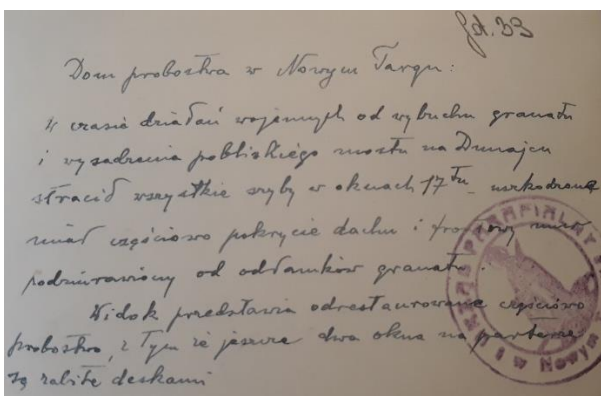 Fot. 33
Dom probostwa w Nowym Targu:
W czasie działań wojennych od wybuchu granatu
i wysadzenia pobliskiego mostu na Dunajcu
stracił wszystkie szyby w oknach 17tu, uszkodzone
miał częściowo pokrycie dachu i frontowy mur
podziurawiony od odłamków granatu.
Widok przedstawia odrestaurowane częściowo
probostwo, z tym że jeszcze dwa okna na parterze
są zabite deskami
PARAFIALNY
w Nowym